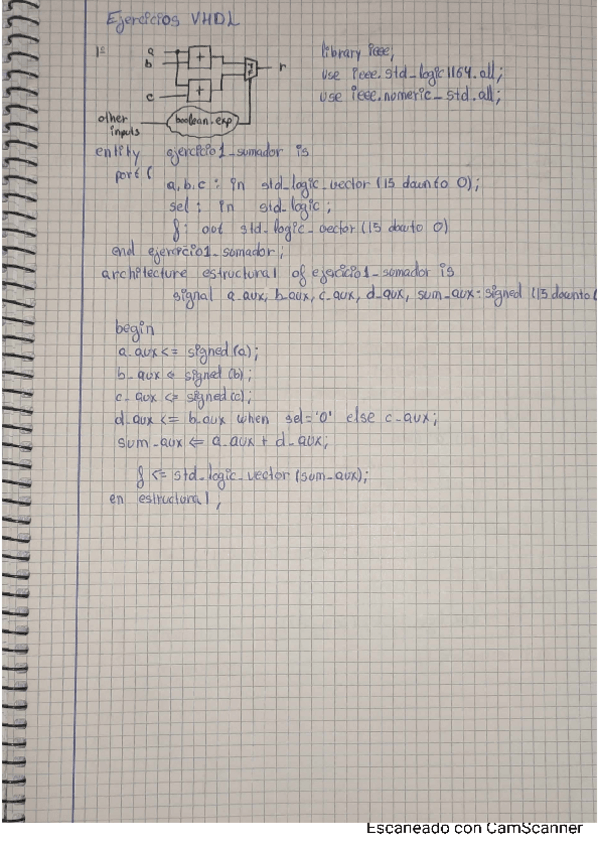 Ejercicios VHDL
1=
a
b
+
r
c
+
other
inputs
boolean.exp
library ieee;
use ieee.std_logic1164.all;
use ieee.numeric_std.all;
entity ejercicio1_sumador is
port (
a,b,c : in std_logic_vector (15 downto 0);
sel : in std_logic;
f : out std_logic_vector (15 dowto 0)
end ejercicio1_sumador;
architecture estructural of ejercicio1_sumador is
signal a_aux, b_aux, c_aux, d_aux, sum_aux: signed (15 downto
begin
a_aux <= signed (a);
b_aux signed (b);
c_aux <= signed (c);
d_aux <= b_aux when sel='0' else c_aux;
sum_aux <= a_aux + d_aux;
f <= std_logic_vector (sum_aux);
en estructural;
Escaneado con CamScanner